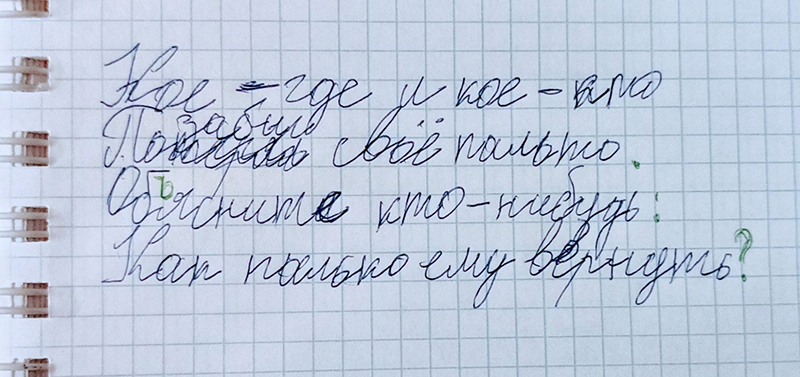 Кое-где и кое-кто
Позабыл своё пальто.
Объясните кто-нибудь:
Как пальто ему вернуть?